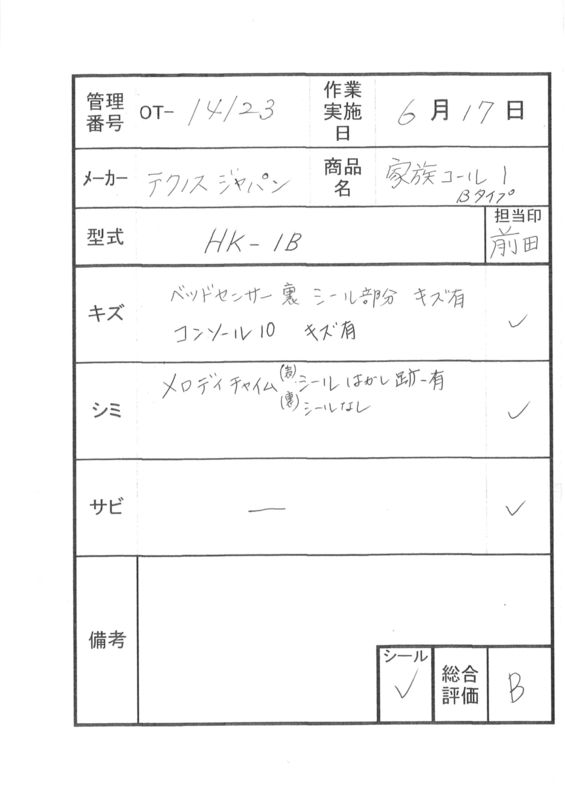 管理番号 OT- 14123 作業実施日 6月17日
メーカー テクノスジャパン 商品名 家族コール 1 Bタイプ
型式 HK-1B 担当印 前田
キズ ベッドセンサー裏 シール部分 キズ有 ✓
コンソール10 キズ有
シミ メロディチャイム(表)シールはがし跡有 ✓
(裏)シールなし
サビ — ✓
備考
シール ✓ 総合評価 B